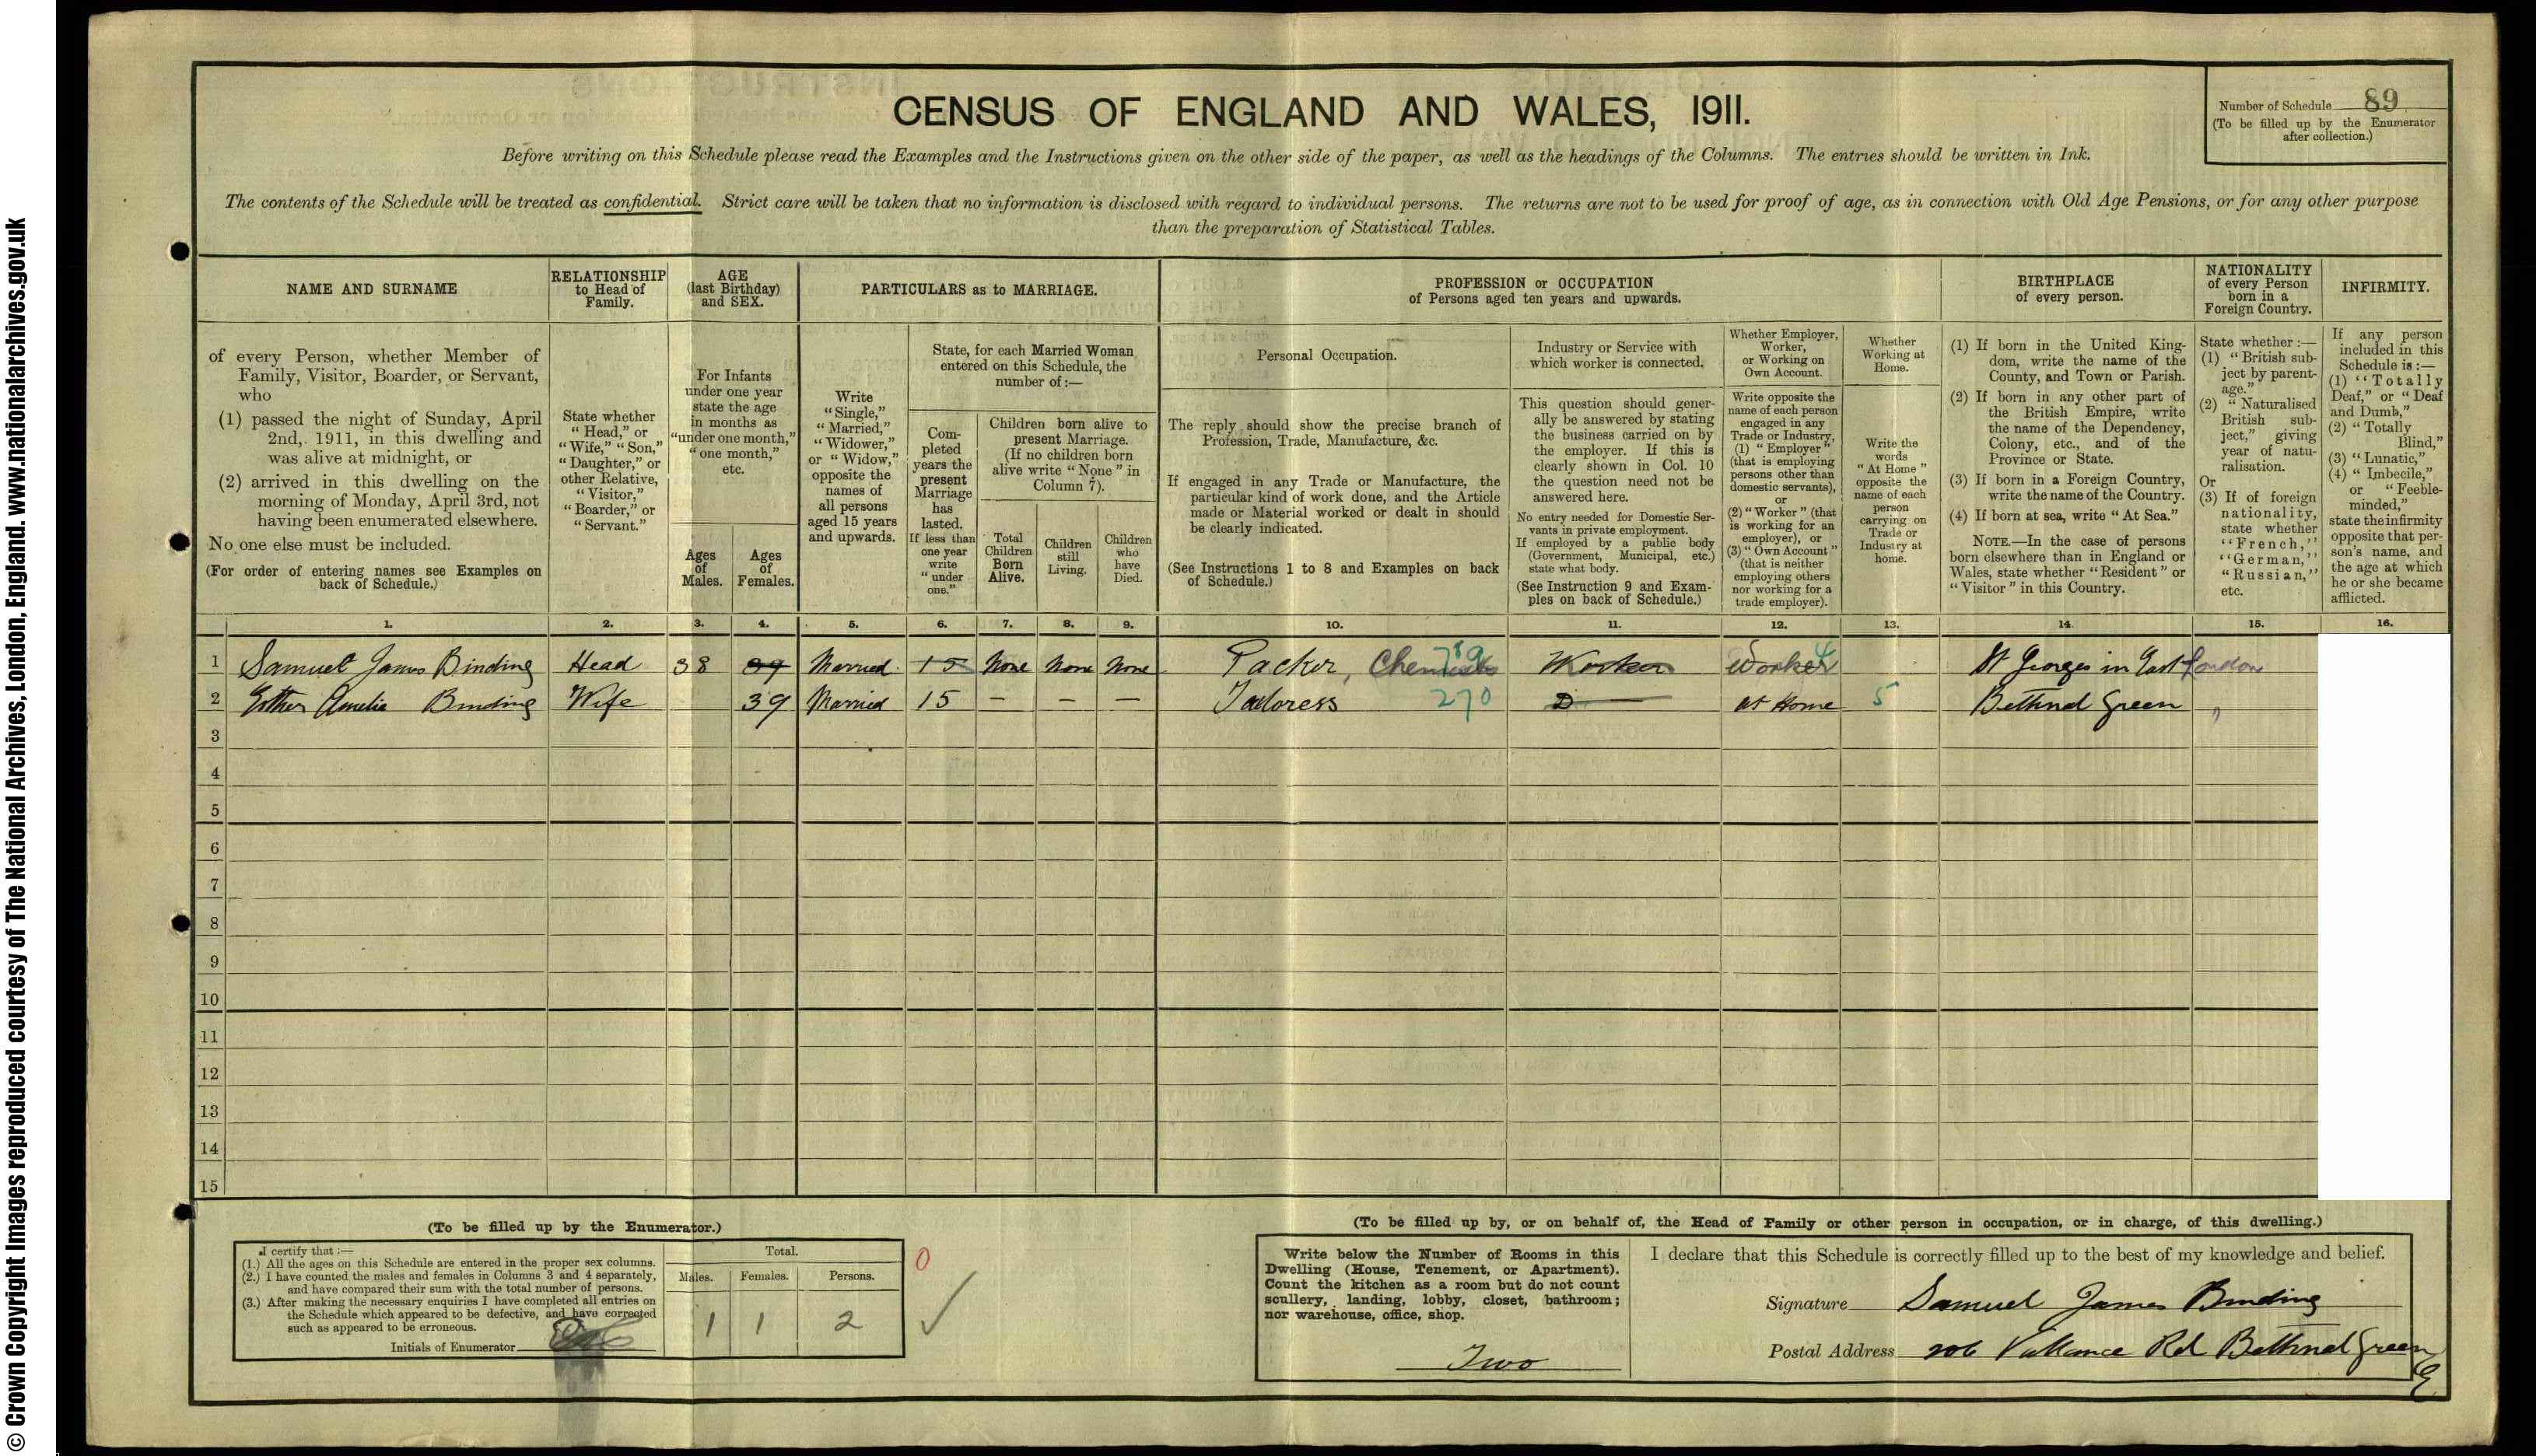 © Crown Copyright Images reproduced courtesy of The National Archives, London, England. www.nationalarchives.gov.uk
CENSUS OF ENGLAND AND WALES, 1911.
Number of Schedule 89
(To be filled up by the Enumerator
after collection.)
Before writing on this Schedule please read the Examples and the Instructions given on the other side of the paper, as well as the headings of the Columns. The entries should be written in Ink.
The contents of the Schedule will be treated as confidential. Strict care will be taken that no information is disclosed with regard to individual persons. The returns are not to be used for proof of age, as in connection with Old Age Pensions, or for any other purpose
than the preparation of Statistical Tables.
NAME AND SURNAME
of every Person, whether Member of
Family, Visitor, Boarder, or Servant,
who
(1) passed the night of Sunday, April
2nd, 1911, in this dwelling and
was alive at midnight, or
(2) arrived in this dwelling on the
morning of Monday, April 3rd, not
having been enumerated elsewhere.
No one else must be included.
(For order of entering names see Examples on
back of Schedule.)
RELATIONSHIP
to Head of
Family.
State whether
"Head," or
"Wife," "Son,"
"Daughter," or
other Relative,
"Visitor,"
"Boarder," or
"Servant."
AGE
(last Birthday)
and SEX.
For Infants
under one year
state the age
in months as
"under one month,"
"one month,"
etc.
Ages
of
Males.
Ages
of
Females.
PARTICULARS as to MARRIAGE.
Write
"Single,"
"Married,"
"Widower,"
or "Widow,"
opposite the
names of
all persons
aged 15 years
and upwards.
State, for each Married Woman
entered on this Schedule, the
number of :—
Com-
pleted
years the
present
Marriage
has
lasted.
If less than
one year
write
"under
one."
Children born alive to
present Marriage.
(If no children born
alive write "None" in
Column 7).
Total
Children
Born
Alive.
Children
still
Living.
Children
who
have
Died.
PROFESSION or OCCUPATION
of Persons aged ten years and upwards.
Personal Occupation.
The reply should show the precise branch of
Profession, Trade, Manufacture, &c.
If engaged in any Trade or Manufacture, the
particular kind of work done, and the Article
made or Material worked or dealt in should
be clearly indicated.
(See Instructions 1 to 8 and Examples on back
of Schedule.)
Industry or Service with
which worker is connected.
This question should gener-
ally be answered by stating
the business carried on by
the employer. If this is
clearly shown in Col. 10
the question need not be
answered here.
No entry needed for Domestic Ser-
vants in private employment.
If employed by a public body
(Government, Municipal, etc.)
state what body.
(See Instruction 9 and Exam-
ples on back of Schedule.)
Whether Employer,
Worker,
or Working on
Own Account.
Write opposite the
name of each person
engaged in any
Trade or Industry,
(1) "Employer"
(that is employing
persons other than
domestic servants),
or
(2) "Worker" (that
is working for an
employer), or
(3) "Own Account"
(that is neither
employing others
nor working for a
trade employer).
Whether
Working at
Home.
Write the
words
"At Home"
opposite the
name of each
person
carrying on
Trade or
Industry at
home.
BIRTHPLACE
of every person.
(1) If born in the United King-
dom, write the name of the
County, and Town or Parish.
(2) If born in any other part of
the British Empire, write
the name of the Dependency,
Colony, etc., and of the
Province or State.
(3) If born in a Foreign Country,
write the name of the Country.
(4) If born at sea, write "At Sea."
NOTE.—In the case of persons
born elsewhere than in England or
Wales, state whether "Resident" or
"Visitor" in this Country.
NATIONALITY
of every Person
born in a
Foreign Country.
State whether :—
(1) "British sub-
ject by parent-
age."
(2) "Naturalised
British sub-
ject," giving
year of natu-
ralisation.
Or
(3) If of foreign
nationality,
state whether
"French,"
"German,"
"Russian,"
etc.
INFIRMITY.
If any person
included in this
Schedule is :—
(1) "Totally
Deaf," or "Deaf
and Dumb,"
(2) "Totally
Blind,"
(3) "Lunatic,"
(4) "Imbecile,"
or "Feeble-
minded,"
state the infirmity
opposite that per-
son's name, and
the age at which
he or she became
afflicted.
1. 2. 3. 4. 5. 6. 7. 8. 9. 10. 11. 12. 13. 14. 15. 16.
1 Samuel James Binding Head 38 39 Married 15 None None None Packer, Chemists 789 Worker Worker 4 St Georges in East London
2 Esther Amelia Binding Wife 39 Married 15 — — — Tailoress 270 at Home 5 Bethnal Green "
3
4
5
6
7
8
9
10
11
12
13
14
15
(To be filled up by the Enumerator.)
I certify that :—
(1.) All the ages on this Schedule are entered in the proper sex columns.
(2.) I have counted the males and females in Columns 3 and 4 separately,
and have compared their sum with the total number of persons.
(3.) After making the necessary enquiries I have completed all entries on
the Schedule which appeared to be defective, and have corrected
such as appeared to be erroneous.
Initials of Enumerator
Total.
Males. Females. Persons.
1 1 2
0
(To be filled up by, or on behalf of, the Head of Family or other person in occupation, or in charge, of this dwelling.)
Write below the Number of Rooms in this
Dwelling (House, Tenement, or Apartment).
Count the kitchen as a room but do not count
scullery, landing, lobby, closet, bathroom;
nor warehouse, office, shop.
Two
I declare that this Schedule is correctly filled up to the best of my knowledge and belief.
Signature Samuel James Binding
Postal Address 206 Vallance Rd Bethnal Green
E